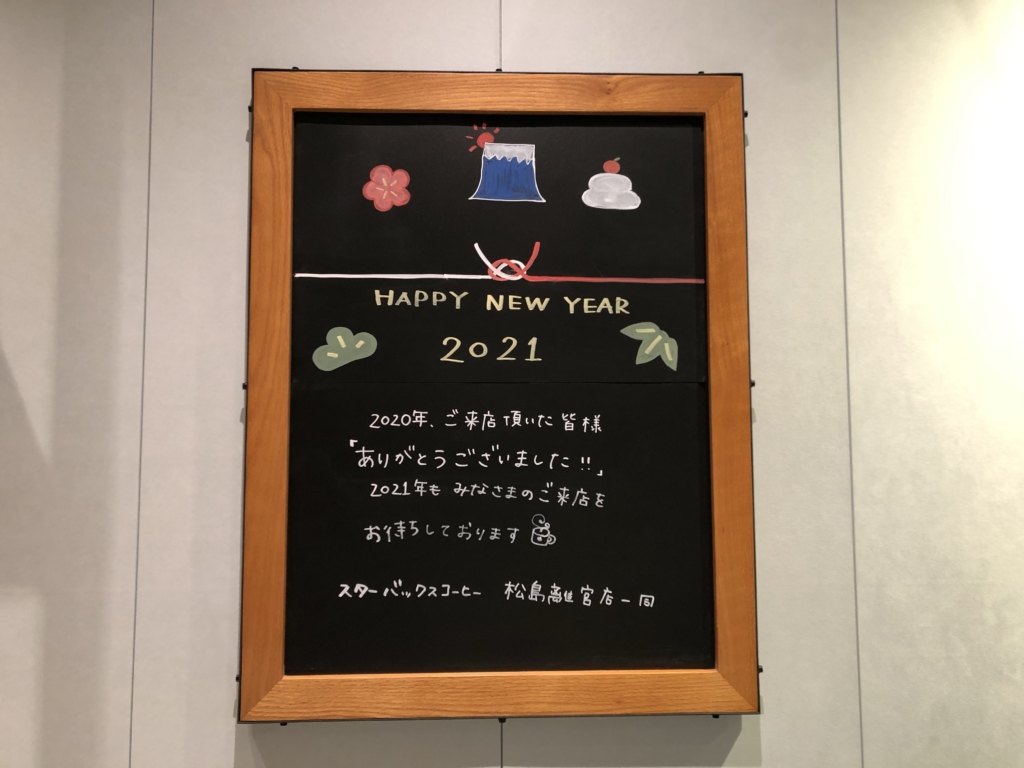 HAPPY NEW YEAR
2021
2020年、ご来店頂いた皆様
「ありがとうございました!!」
2021年も みなさまのご来店を
お待ちしております
スターバックスコーヒー 松島離宮店一同